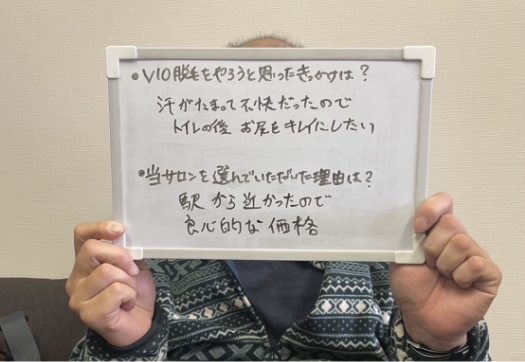 • VIO脱毛をやろうと思ったきっかけは？
汗がたまって不快だったので
トイレの後 お尻をキレイにしたい
•当サロンを選んでいただいた理由は？
駅から近かったので
良心的な価格